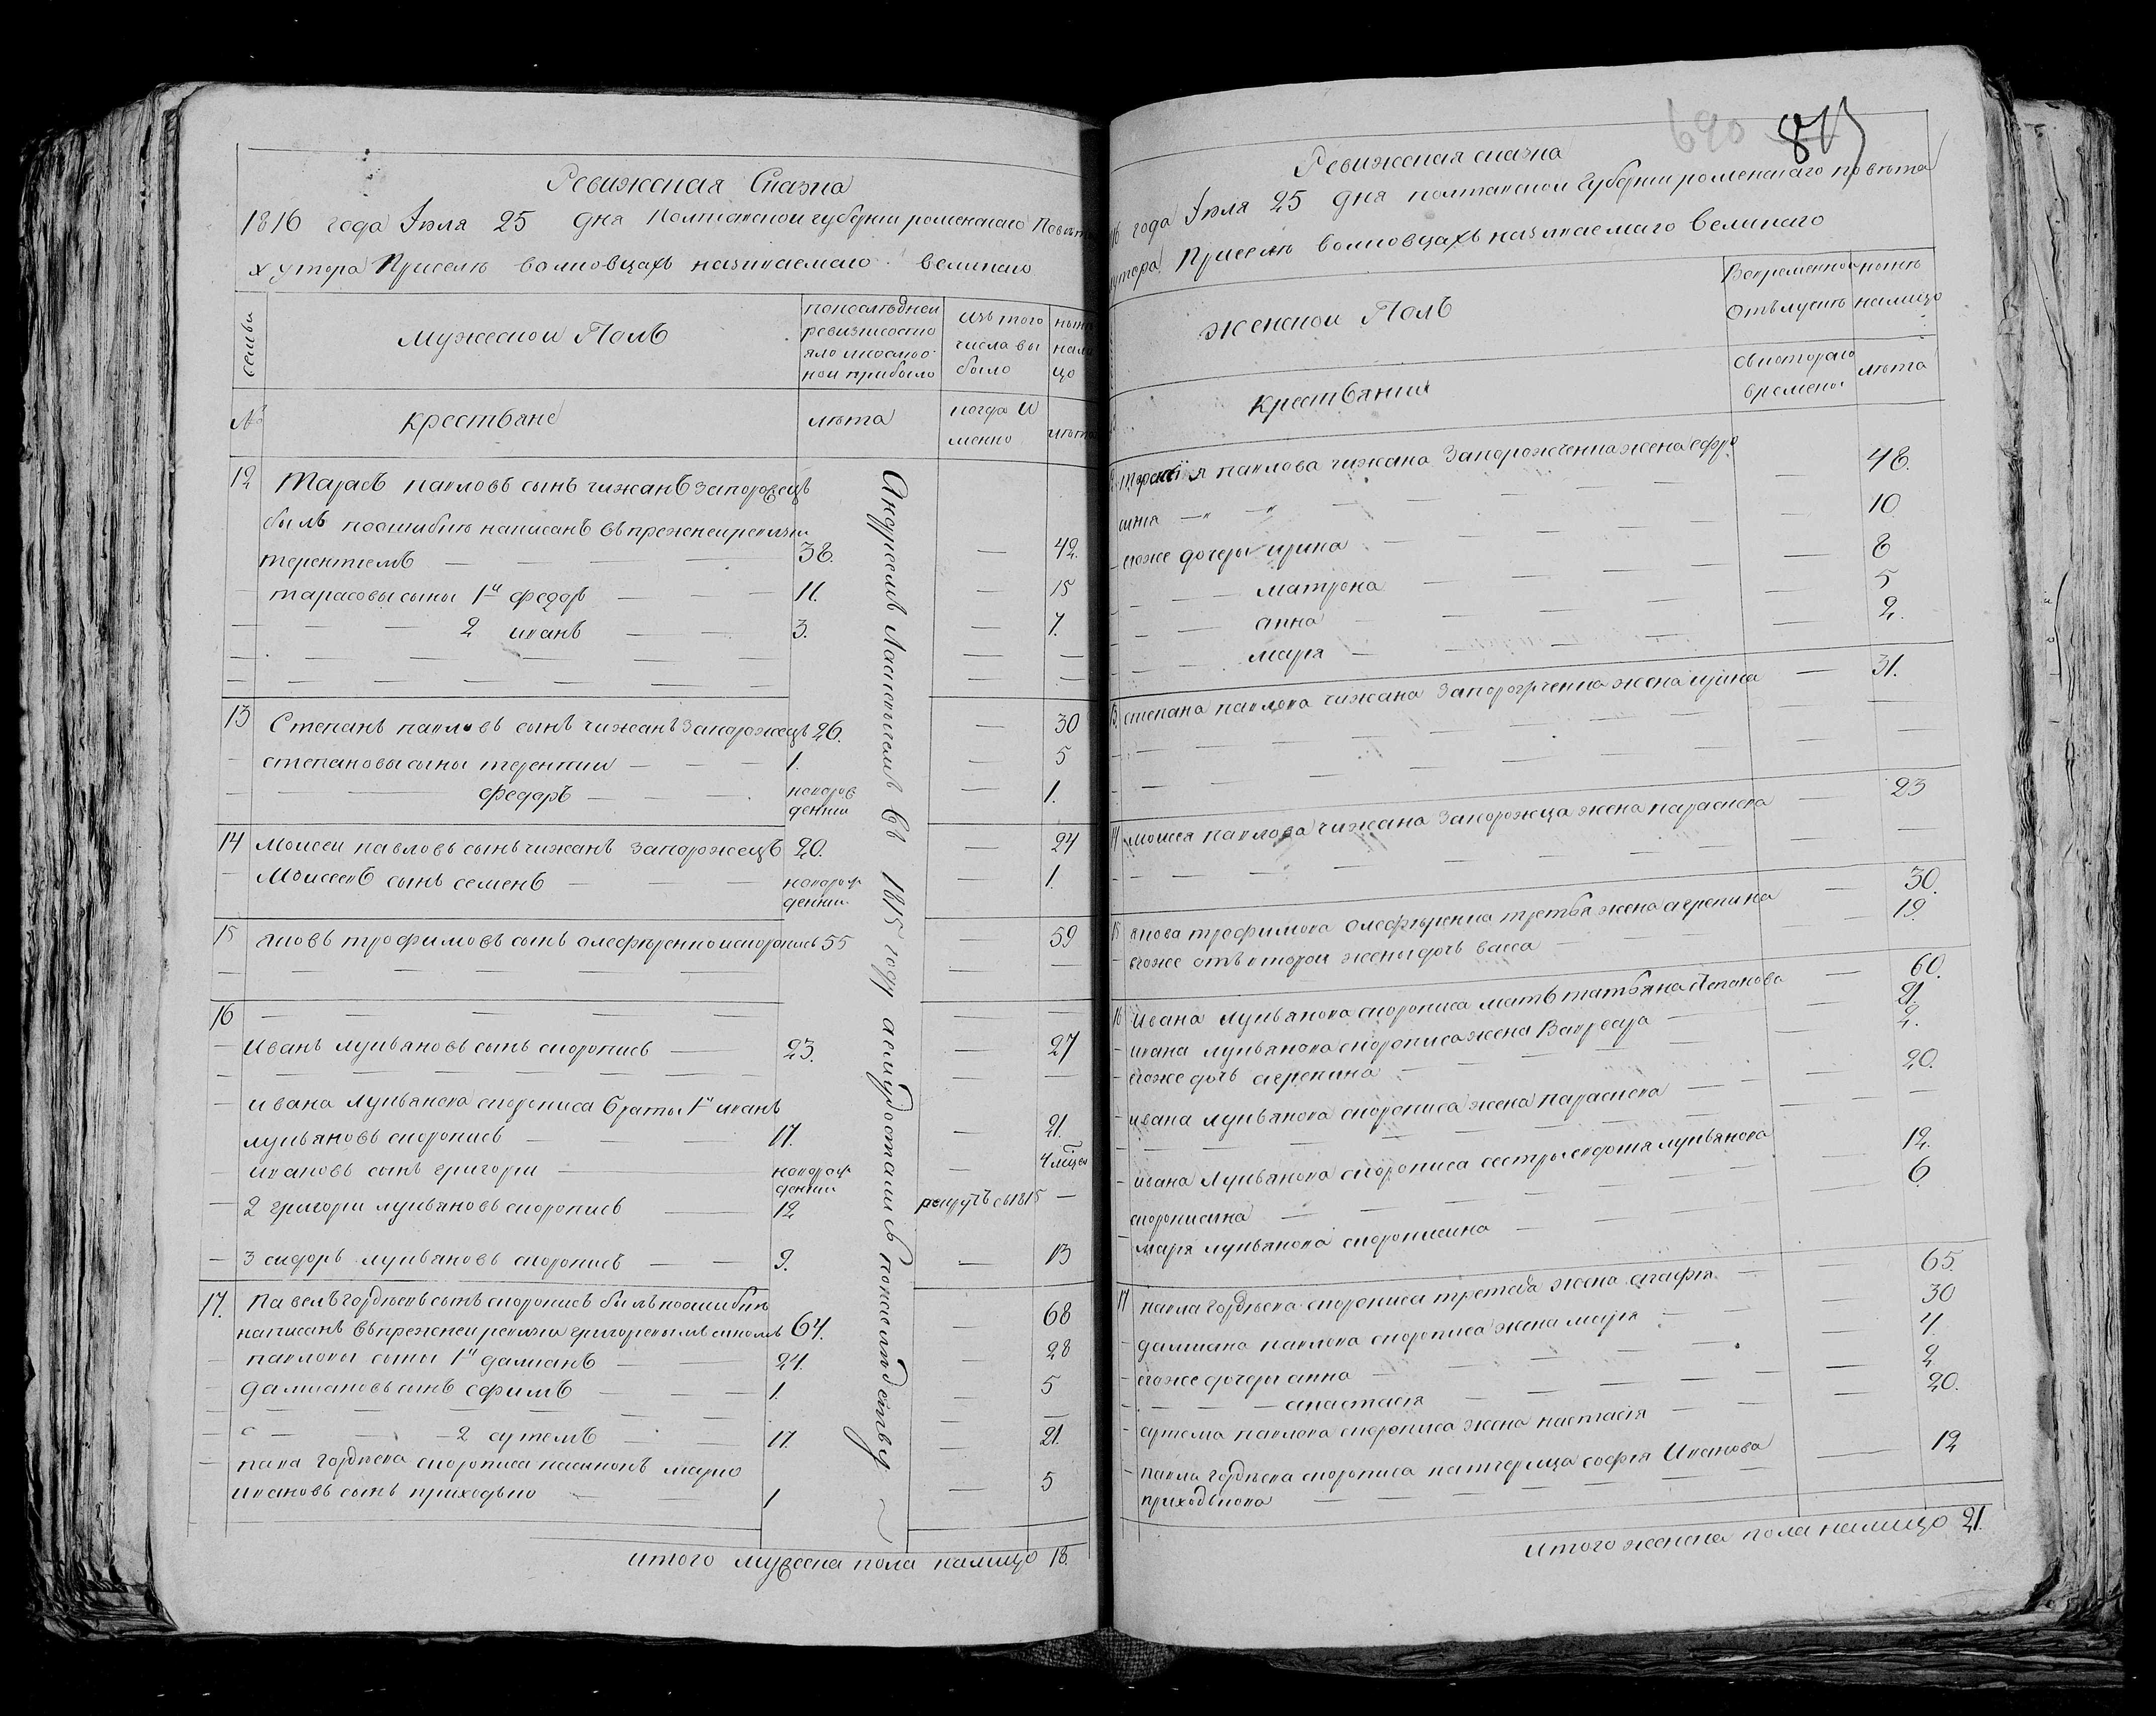 Ревижская Сказка
1816 года Іюля 25 дня Полтавской губернии роменскаго Повѣта
хутора Приселю волковцахъ називаемаго великаго
семьи
мужеской Полъ
попоследней
ревизии состо
яло и после
ной прибыло
изъ того
числа вы
было
ныне
нали
цо
№
крестьяне
лѣта
когда и
менно
лѣта
12 Тарасъ павловъ сынъ чижанъ запорожецъ
былъ поошибки написанъ въ прежней ревизии
терентиемъ — 38. — 42.
тарасовы сыны 1й федоръ — 11. — 15
2 иванъ — 3. — 7.
13 Степанъ павловъ сынъ чижанъ запорожецъ 26. — 30
степановы сыны терентий — 1. — 5
федоръ — новорож — 1.
дений
14 Моисей павловъ сынъ чижанъ запорожецъ 20. — 24
Моисеевъ сынъ семенъ — новорож — 1.
дений
15 яковъ трофимовъ сынъ олефѣренко искорописъ 55 — 59
16
Иванъ лукьяновъ сынъ скорописъ — 23. — 27
ивана лукьянова скорописа браты 1й иванъ
лукьяновъ скорописъ — 17. — 21.
ивановъ сынъ григорий — новорож — 4 мсцы
дений
2 григорий лукьяновъ скорописъ — 12 рекрутъ съ 1815 —
3 сидоръ лукьяновъ скорописъ — 9. — 13
17. Павелъ гордѣевъ сынъ скорописъ былъ поошибки
написанъ въ прежней ревизии григоревымъ сыномъ 64. — 68
павловы сыны 1й дамианъ — 24. — 28
дамиановъ сынъ ефимъ — 1. — 5
2 еутемъ — 17. — 21.
павла гордѣева скорописа пасынокъ марко
ивановъ сынъ приходько — 1 — 5
итого мужеска пола налицо 18.
Андреемъ въ 1815 году
690 813
Ревижская сказка
года Іюля 25 дня полтавской губернии роменскаго повѣта
хутора Приселю волковцахъ називаемаго великаго
женской Полъ
Вовременной
отълучке
ныне
налицо
крестьянки
съкотораго
времени
лѣта
павлова чижана Запорожченка жена ефро — 48.
синия
егоже дочеры ирина — 10.
матрона — 8
анна — 5
мария — 2.
13. степана павлова чижана запорожченка жена ирина — 31.
14 моисея павлова чижана Запорожца жена параскева — 23
15 якова трофимова олефѣренка третья жена агрепина — 30.
егоже отъ второй жены дочь васса — 19.
16 ивана лукьянова скорописа мать татьяна Степанова — 60.
ивана лукьянова скорописа жена Варвара — 21.
егоже дочь агрепина — 2.
ивана лукьянова скорописа жена параскева — 20.
ивана лукьянова скорописа сестры евдокия лукьянова — 12.
скорописина
мария лукьянова скорописина — 6.
17 павла гордѣева скорописа третья жена агафия — 65.
дамиана павлова скорописа жена мария — 30
егоже дочеры анна — 4.
анастасия — 2
еутема павлова скорописа жена настасия — 20.
павла гордѣева скорописа патчерица софия Иванова — 12
приходькова
итого женска пола налицо 21.